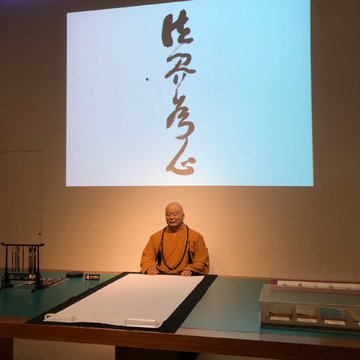 法界為心